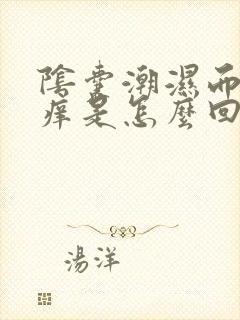 陰囊潮濕而
痒是怎麼回
湯洋